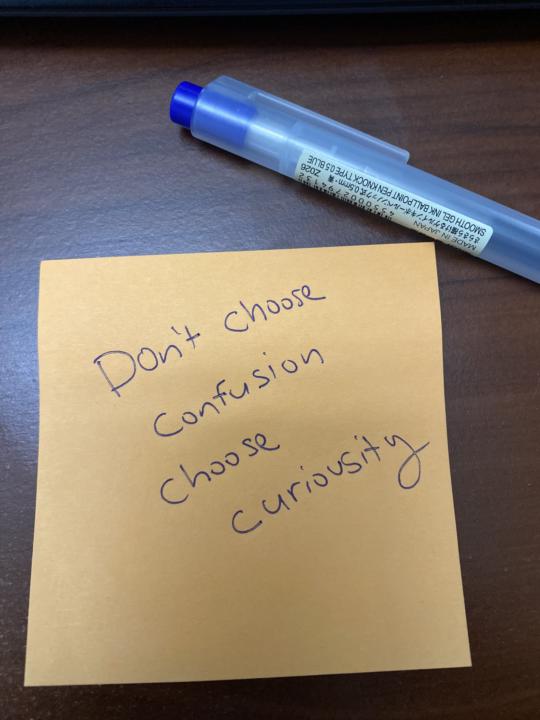 Don't choose
confusion
choose
curiousity
MADE IN JAPAN
SMOOTH GEL INK BALLPOINT PEN KNOCK TYPE 0.5 BLUE